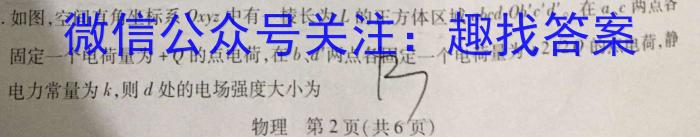 如图,空间直角坐标系 Oxyz 中有一棱长为 L 的正方体区域 在 a、c 两点各
微信公众号关注：趣找答案
固定一个电荷量为+Q的点电荷,在 b、 两点各固定一个电荷量为 的点电荷,静
电力常量为 k,则 d 处的电场强度大小为
物理 第2页(共6页)